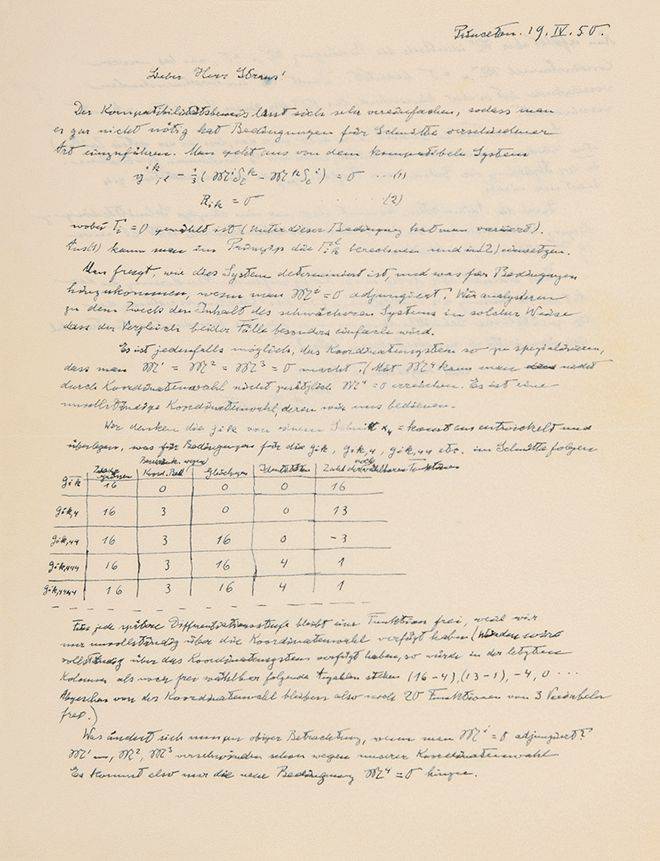 Princeton. 19. IV. 50.
Lieber Herr Straus!
Der Kompatibilitätsbeweis lässt sich sehr vereinfachen, sodass man
es gar nicht nötig hat Bedingungen für Schnitte verschiedener
Art einzuführen. Man geht aus von dem kompatibeln System
(1)
R_ik = 0 (2)
wobei Γ_i = 0 gewählt ist (Unter dieser Bedingung hat man variiert).
Aus (1) kann man im Prinzip die Γ berechnen und in (2) einsetzen.
Man fragt, wie dies System determiniert ist, und was für Bedingungen
hinzukommen, wenn man 𝔐^i = 0 adjungiert. Wir analysieren
zu dem Zweck den Inhalt des schwächeren Systems in solcher Weise
dass der Vergleich beider Fälle besonders einfach wird.
Es ist jedenfalls möglich, das Koordinatensystem so zu spezialisieren,
dass man 𝔐¹ = 𝔐² = 𝔐³ = 0 macht. 𝔐⁴ kann man nicht
durch Koordinatenwahl nicht zusätzlich 𝔐⁴ = 0 erreichen. Es ist eine
unvollständige Koordinatenwahl, deren wir uns bedienen.
Wir denken die g_ik von einem Schnitt x₄ = konst aus entwickelt und
überlegen, was für Bedingungen für die g_ik, g_ik,4, g_ik,44 etc. im Schnitte folgen
Koord. Wahl Gleichungen Identitäten Zahl der noch wählbaren Funktionen
g_ik 16 0 0 0 16
g_ik,4 16 3 0 0 13
g_ik,44 16 3 16 0 -3
g_ik,444 16 3 16 4 1
g_ik,4444 16 3 16 4 1
Für jede spätere Differentiationsstufe bleibt eine Funktion frei, weil wir
nur unvollständig über die Koordinatenwahl verfügt haben (Würden wir
vollständig über das Koordinatensystem verfügt haben, so würde in der letzten
Kolonne als noch frei wählbar folgende Angaben stehen (16-4), (13-1), -4, 0 ...
Abgesehen von der Koordinatenwahl bleiben also noch 20 Funktionen von 3 Variabeln
frei.)
Was ändert sich nun an obiger Betrachtung, wenn man 𝔐^i = 0 adjungiert?
𝔐¹, 𝔐², 𝔐³ verschwinden schon wegen unserer Koordinatenwahl
Es kommt also nur die neue Bedingung 𝔐⁴ = 0 hinzu.